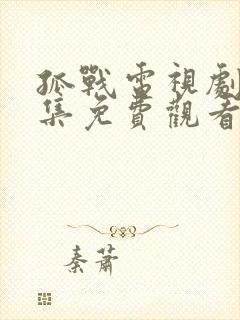 孤戰電視劇
集免費觀看
秦蕭